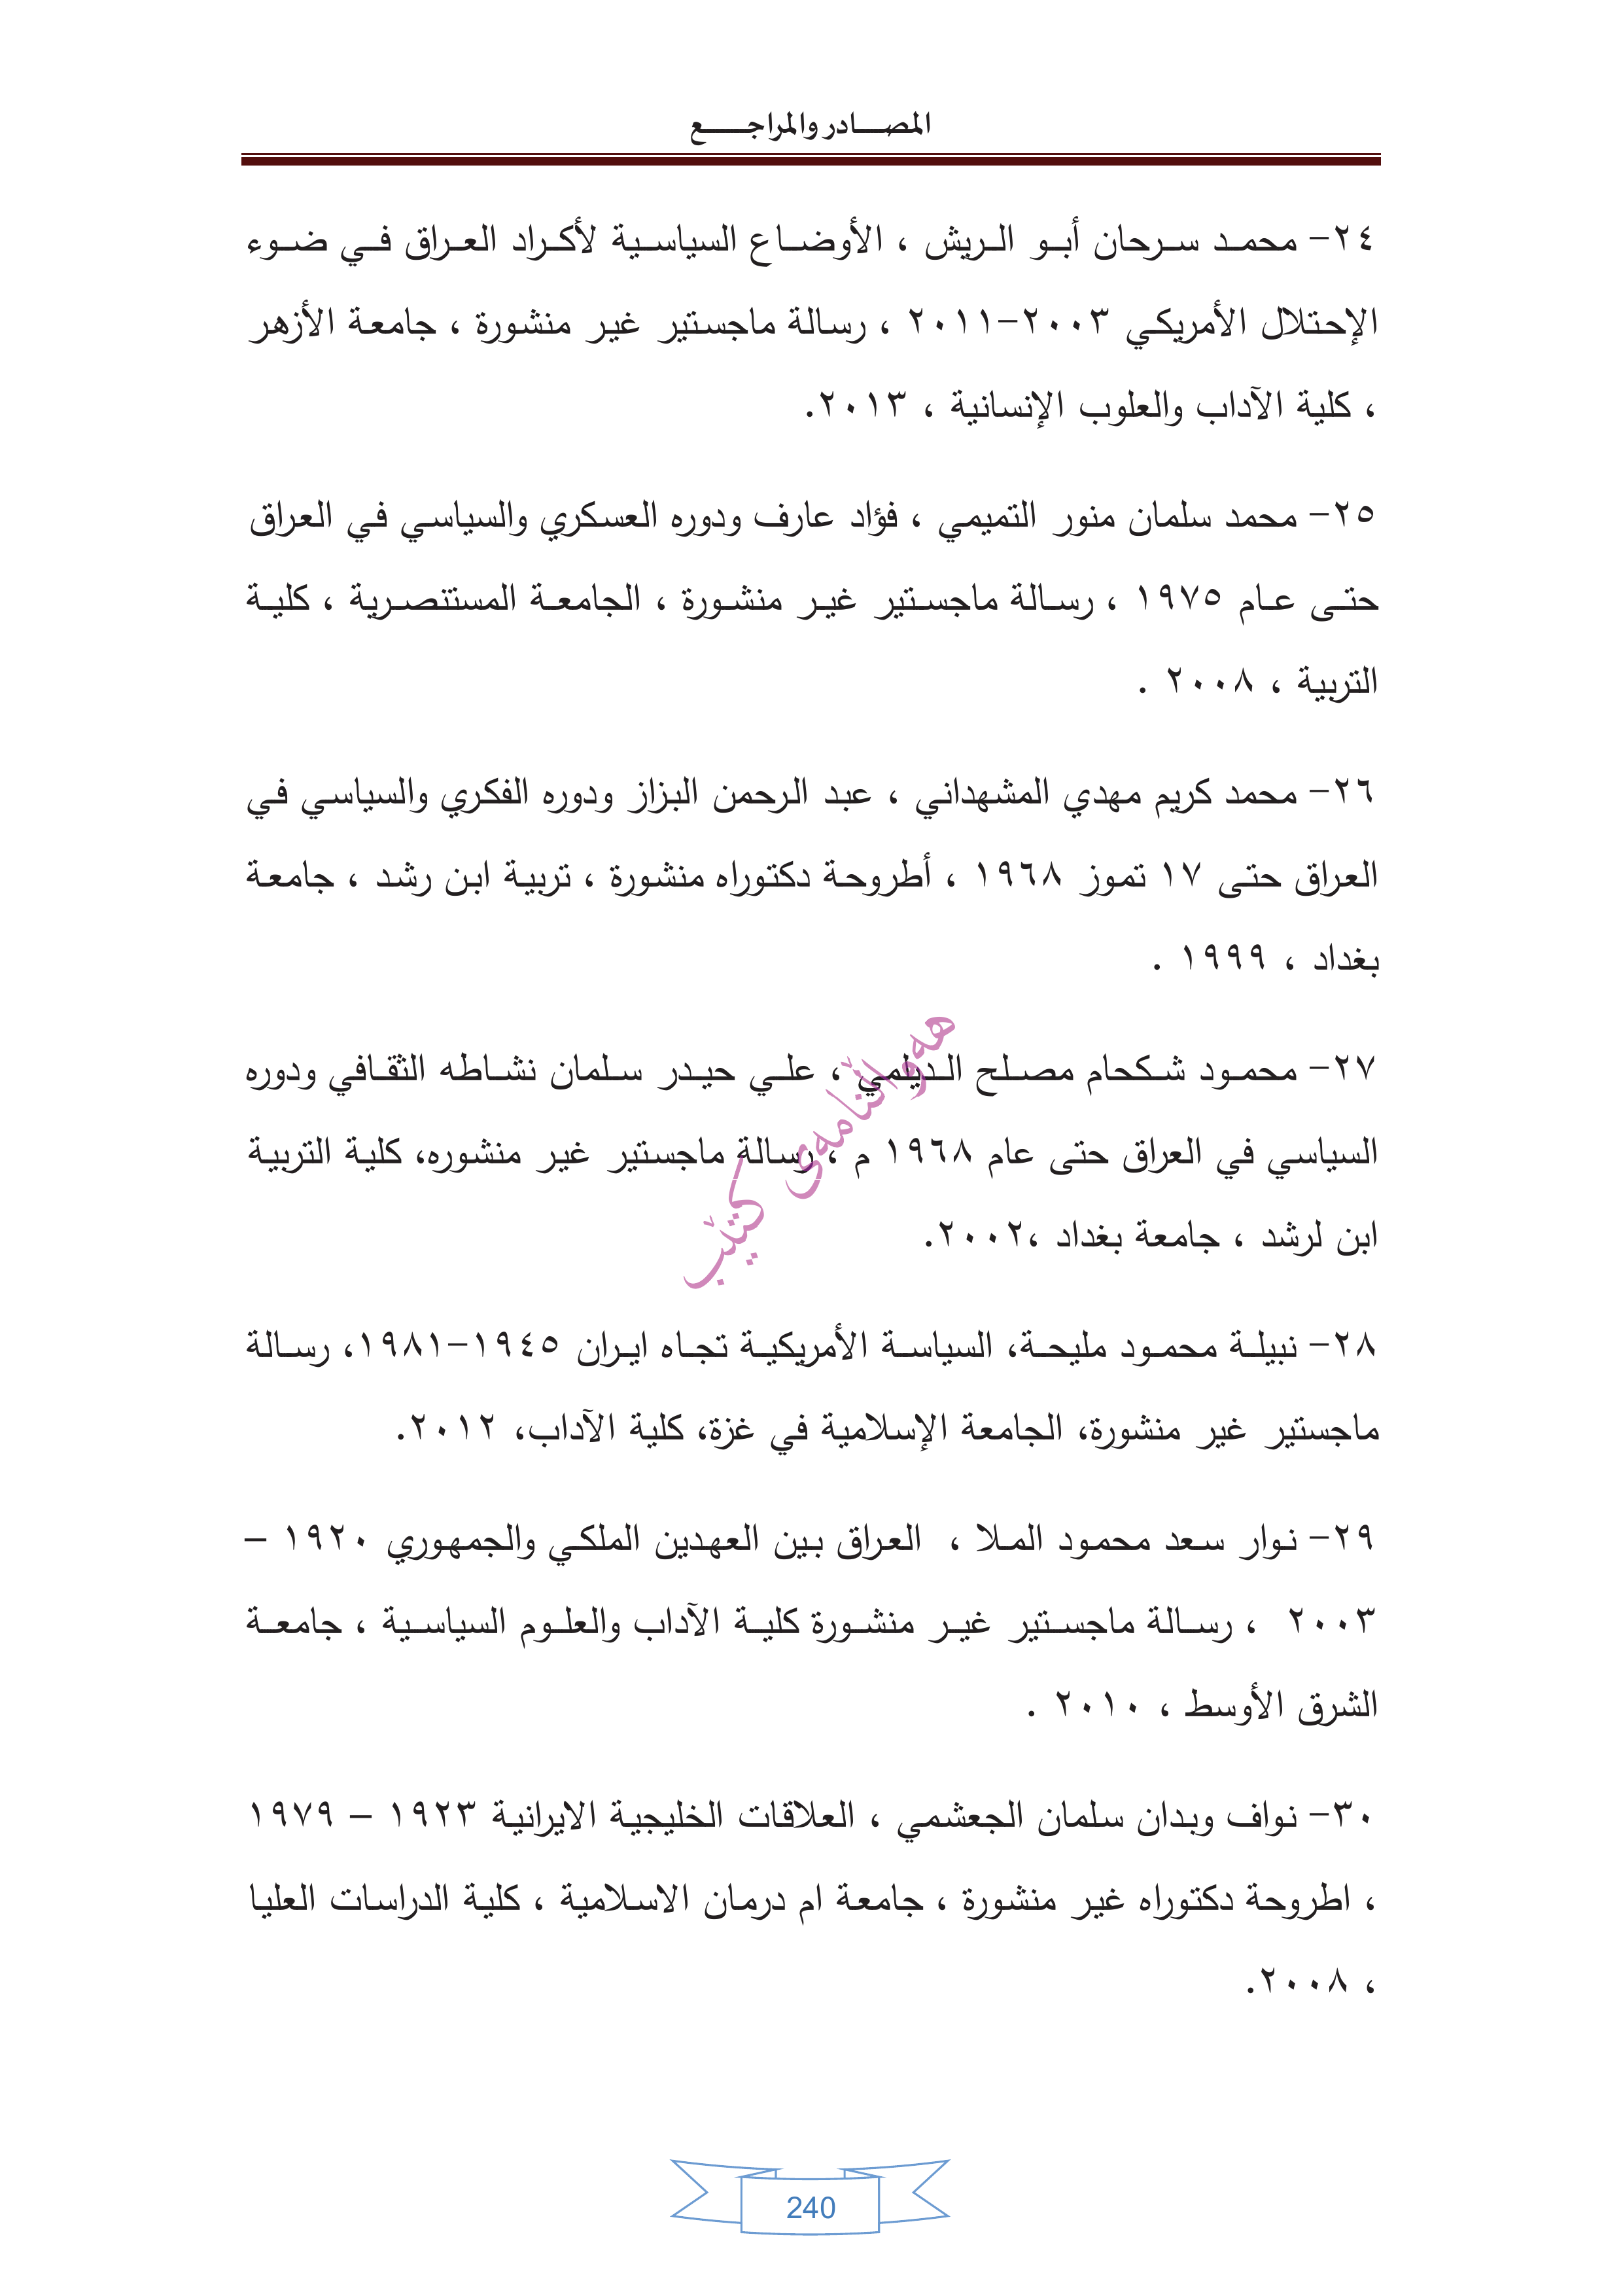 المصادر والمراجع
٢٤- محمد سرحان أبو الريش ، الأوضاع السياسية لأكراد العراق في ضوء
الإحتلال الأمريكي ٢٠٠٣-٢٠١١ ، رسالة ماجستير غير منشورة ، جامعة الأزهر
، كلية الآداب والعلوب الإنسانية ، ٢٠١٣.
٢٥- محمد سلمان منور التميمي ، فؤاد عارف ودوره العسكري والسياسي في العراق
حتى عام ١٩٧٥ ، رسالة ماجستير غير منشورة ، الجامعة المستنصرية ، كلية
التربية ، ٢٠٠٨ .
٢٦- محمد كريم مهدي المشهداني ، عبد الرحمن البزاز ودوره الفكري والسياسي في
العراق حتى ١٧ تموز ١٩٦٨ ، أطروحة دكتوراه منشورة ، تربية ابن رشد ، جامعة
بغداد ، ١٩٩٩ .
٢٧- محمود شكحام مصلح الديلمي ، علي حيدر سلمان نشاطه الثقافي ودوره
السياسي في العراق حتى عام ١٩٦٨ م ، رسالة ماجستير غير منشوره، كلية التربية
ابن لرشد ، جامعة بغداد ،٢٠٠٢.
هەواڵنامەی کتێب
٢٨- نبيلة محمود مليحة، السياسة الأمريكية تجاه ايران ١٩٤٥-١٩٨١، رسالة
ماجستير غير منشورة، الجامعة الإسلامية في غزة، كلية الآداب، ٢٠١٢.
٢٩- نوار سعد محمود الملا ، العراق بين العهدين الملكي والجمهوري ١٩٢٠ –
٢٠٠٣ ، رسالة ماجستير غير منشورة كلية الآداب والعلوم السياسية ، جامعة
الشرق الأوسط ، ٢٠١٠ .
٣٠- نواف وبدان سلمان الجعشمي ، العلاقات الخليجية الايرانية ١٩٢٣ – ١٩٧٩
، اطروحة دكتوراه غير منشورة ، جامعة ام درمان الاسلامية ، كلية الدراسات العليا
، ٢٠٠٨.
240